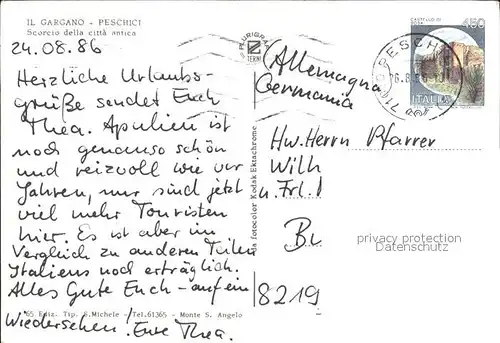 IL GARGANO - PESCHICI
Scorcio della città antica
24.08.86
Herzliche Urlaubs-
grüße sendet Euch
Thea. Apulien ist
noch genauso schön
und reizvoll wie vor
Jahren, nur sind jetzt
viel mehr Touristen
hier. Es ist aber im
Vergleich zu anderen Teilen
Italiens noch erträglich.
Alles Gute Euch - auf ein
Wiedersehen! Eure Thea.
65 Ediz. Tip. S. Michele - Tel. 61365 - Monte S. Angelo
da fotocolor Kodak Ektachrome
PLURIGRAF
TERNI
(Allemagna
Germania
Hw. Herrn Pfarrer
Wilh
u. Frl.
Bu
8219
CASTELLO DI
450
ITALIA
PESCHI
privacy protection
Datenschutz